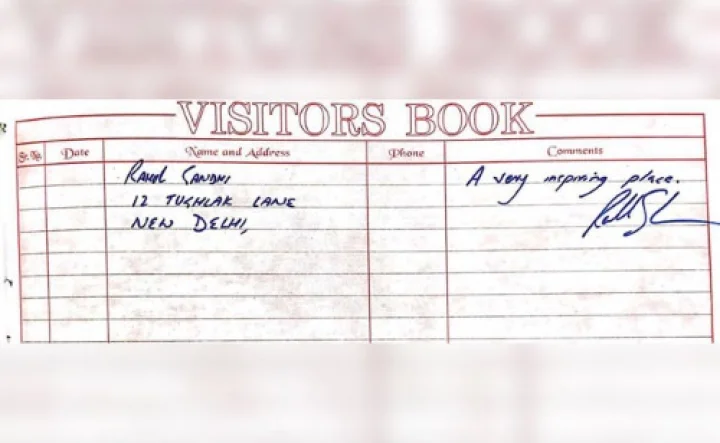 VISITORS BOOK
Sr. No. Date Name and Address Phone Comments
RAHUL GANDHI A very inspiring place.
12 TUGHLAK LANE
NEW DELHI,